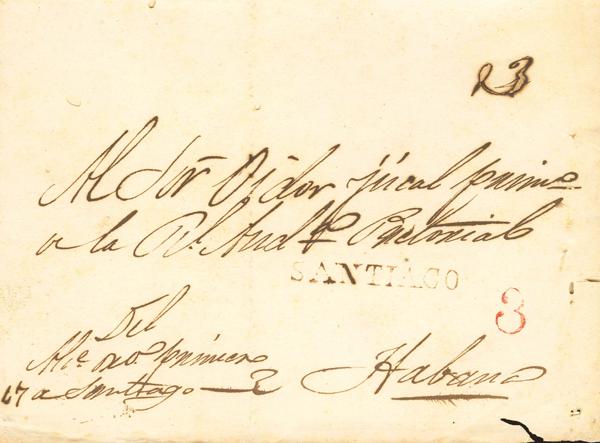 23
Al Sor Oidor fiscal primo
a la Rl. Audª Pretorial
SANTIAGO
3
Del
Ale. primero
a Santiago
Habana